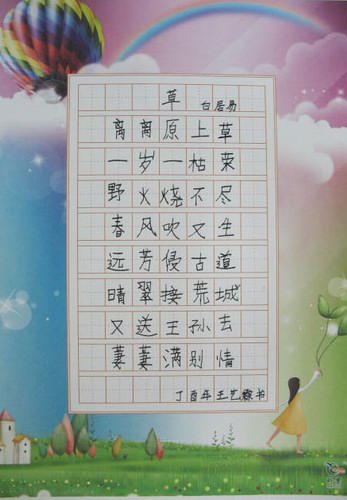 草 白居易
离离原上草
一岁一枯荣
野火烧不尽
春风吹又生
远芳侵古道
晴翠接荒城
又送王孙去
萋萋满别情
丁酉年王艺霖书